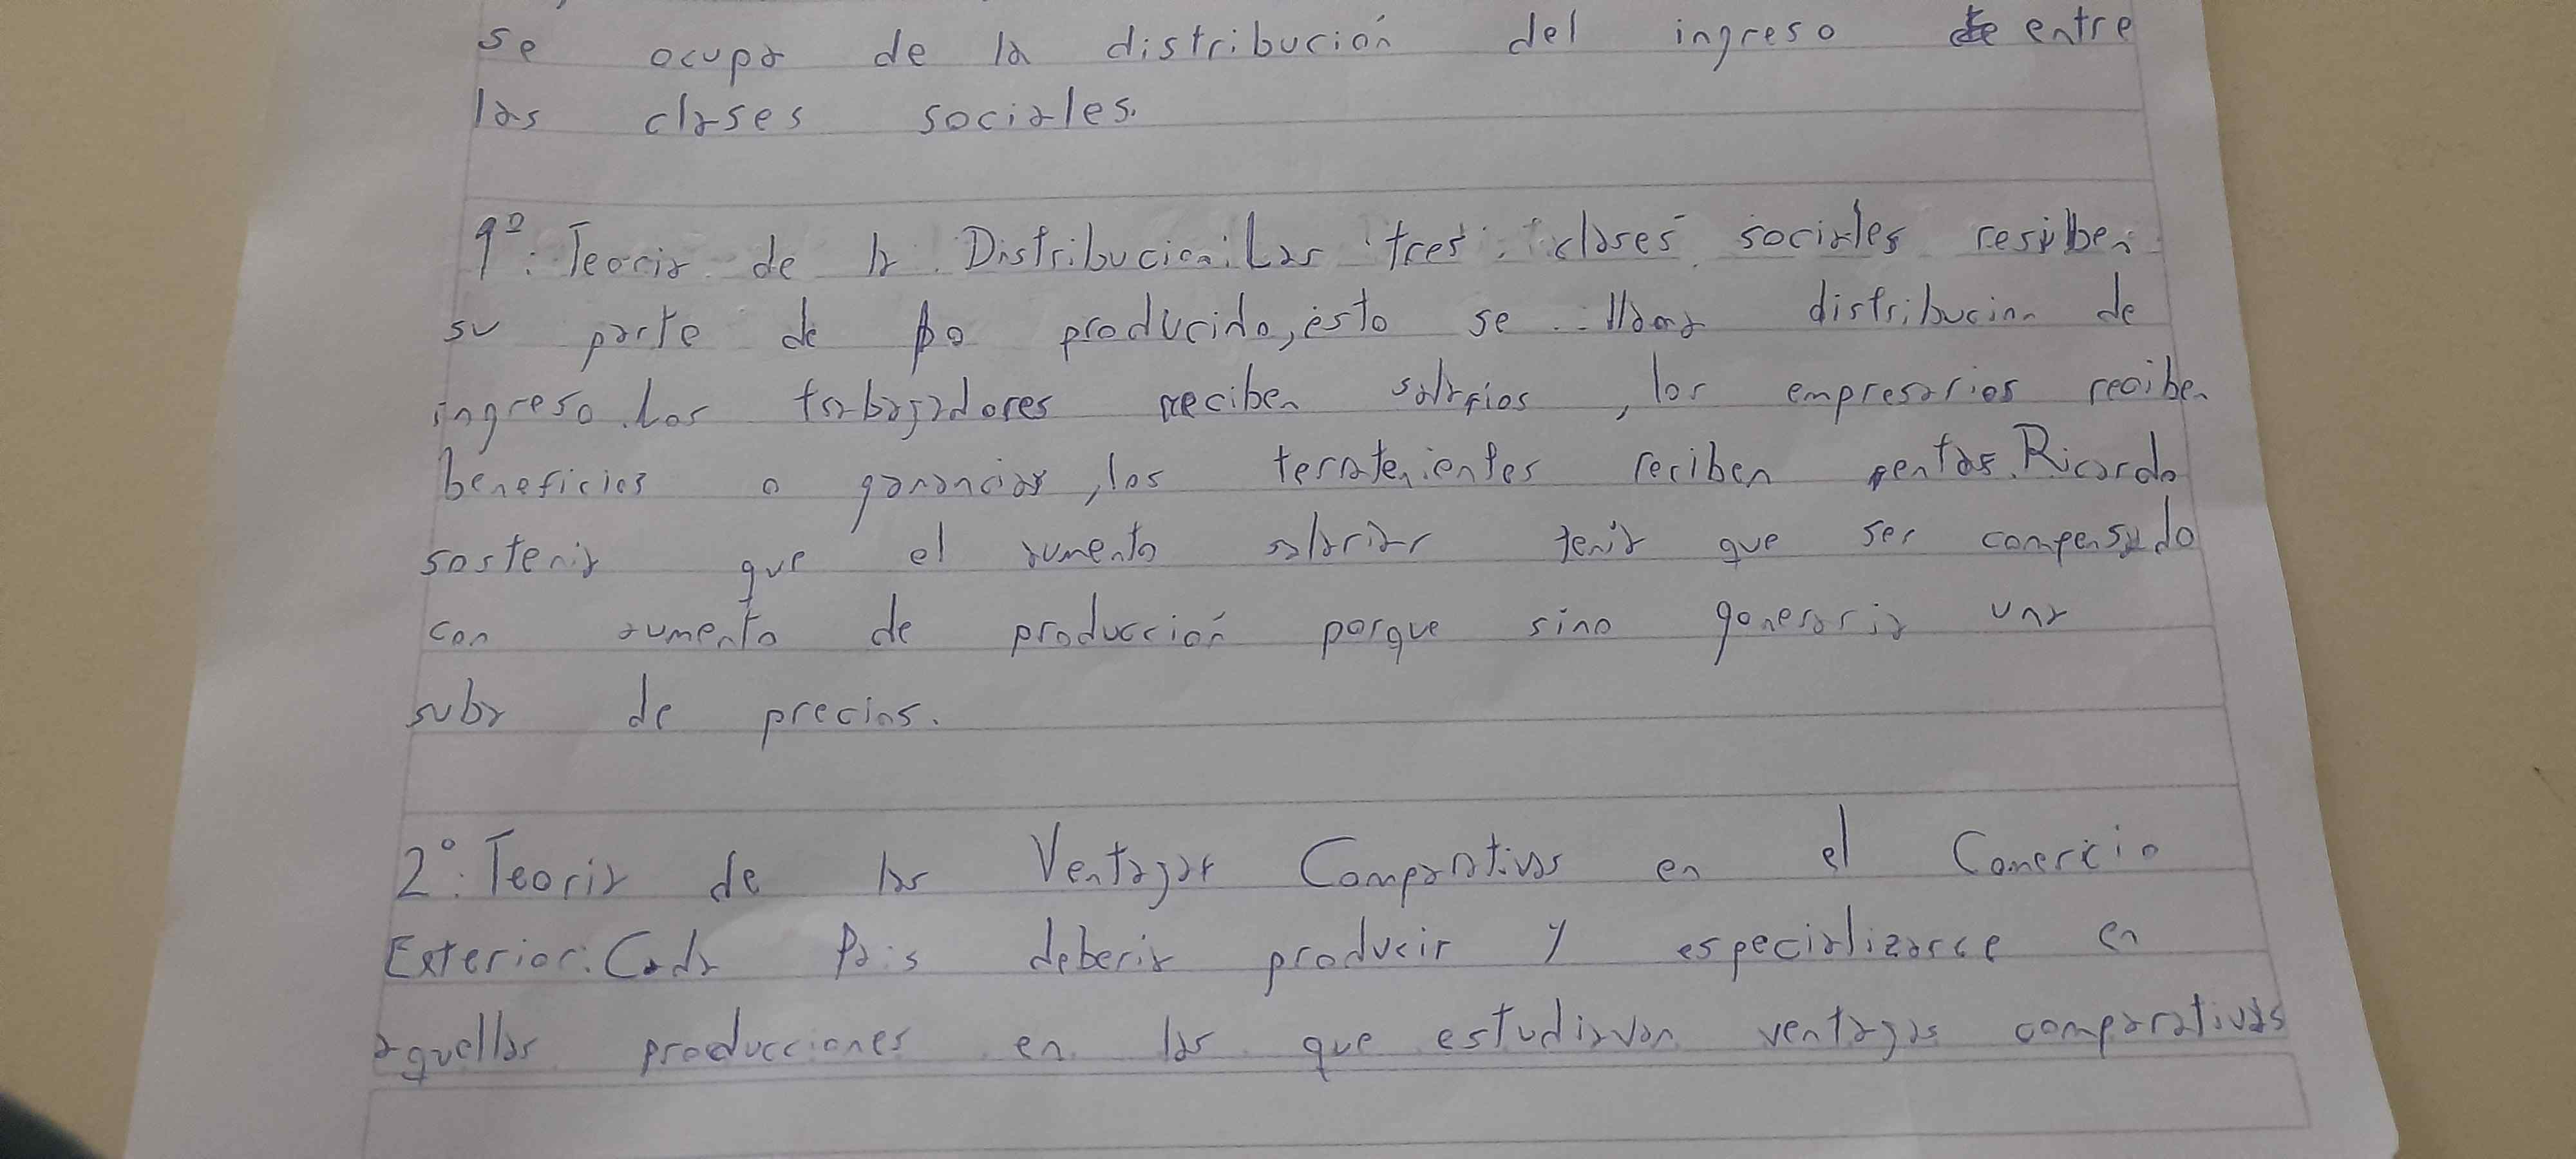 se ocupa de la distribución del ingreso entre
las clases sociales.
1º: Teoria de la Distribucion: Las tres clases sociales resiben
su parte de lo producido, esto se llama distribucion de
ingreso. Los trabajadores reciben salarios, los empresarios reciben
beneficios o ganancias, los terratenientes reciben rentas. Ricardo
sostenia que el aumento salariar tenia que ser compensado
con aumento de producción porque sino generaria una
suba de precios.
2º: Teoria de las Ventajas Comparativas en el Comercio
Exterior: Cada Pais deberia producir y especializarce en
aquellas producciones en las que estudiavan ventajas comparativas